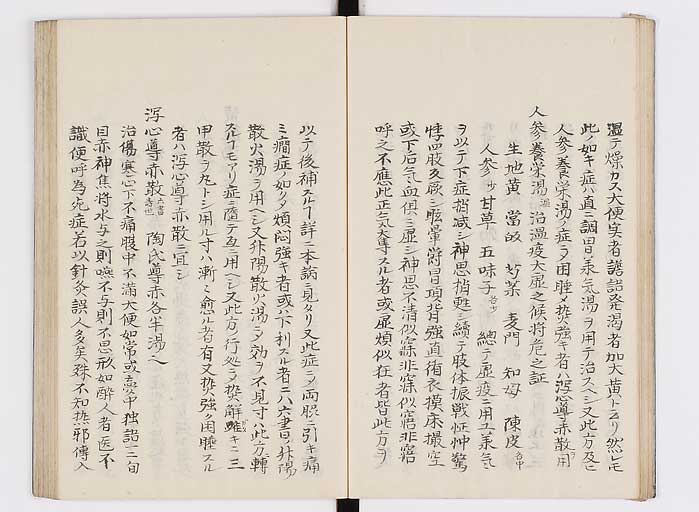 温テ燥カス大便実者譫語発渇者加大黄トアリ然レモ
此ノ如キ症ハ直ニ調胃承気湯ヲ用テ治スベシ又此方及ビ
人参養栄湯ノ症ヲ困睡〆熱強キ者ハ瀉心導赤散ヲ用
人参養栄湯 治温疫大虚之候将危之証
生地黄 當皈 芍薬 麦門 知母 陳皮各中
人参少 甘草 五味子各少 總テ虚疫ニ用ユ承気
ヲ以テ下症梢减シ神思梢甦ニ續テ肢体振戦怔忡驚
悸四肢反厥シ眩暈欝冒項背強直循衣摸床撮空
或下后気血俱ニ虚シ神思不清似寐非寐似寤非寤
呼之不應此正気奪スル者或虚煩似狂者皆此方ヲ
以テ後補スル了詳ニ本論ニ見タリ又此症ヲ両脇ニ引キ痛
ミ癇症ノ如ク煩悶強キ者或ハ下利スル者ニハ六書ノ升陽
散火湯ヲ用ベシ又升陽散火湯ニテ効ヲ不見寸ハ此方轉
スル了モアリ症ニ隨テ互ニ用ベシ又此方ノ行処ヲ熱解雖キニ三
甲散ヲ先トシ用ル寸ハ漸々愈ル者有又熱強ク困睡スル
者ハ瀉心導赤散ニ宜シ
瀉心導赤散六書 陶氏導赤各半湯ト
治傷寒心下不痛腹中不満大便如常或三四日中独語一二句
目赤神焦将水与之則嚥不与則不思形如酔人者医不
識便呼為死症若以針灸誤人多矣殊不知熱邪傳入